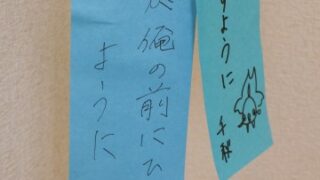 俺の前にひ
ように
すように
千秋